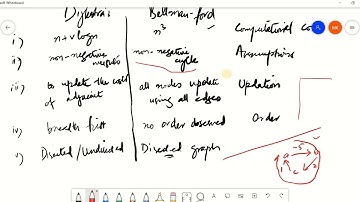 Whiteboard
Dijkstra's Bellman-ford
i) n+vlogn n³ Computational co
ii) non-negative weights non-negative cycle Assumptions
iii) to update the cost of adjacent all nodes update using all edges Updation
iv) breadth first no order observed Order
v) Directed/Undirected Directed graph
a -5 b
1 c 2